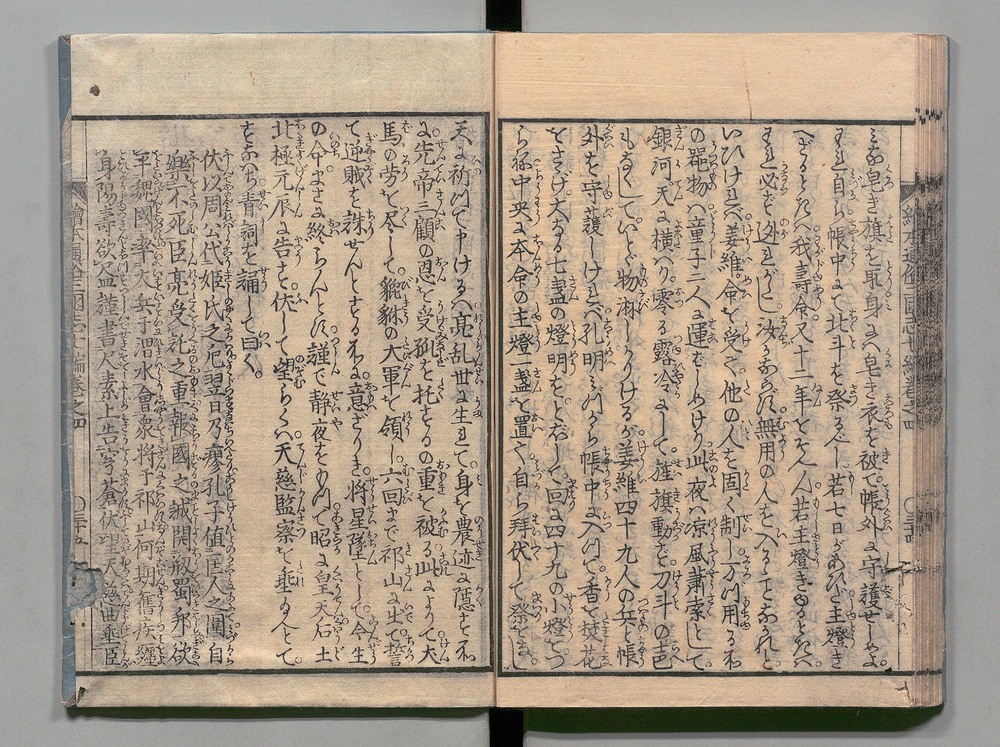 みな皂き旗を取身には皂き衣を被て帳外に守護せしめよ。
われ自ら帳中にて北斗を祭るべし。若七日があひだ主燈き
へざるときんば我壽命又十二年をそへん若主燈きゆるときんバ
われ必ず逃れがたし。汝かならず無用の人を入ることなかれと
いひければ姜維命を受て他の人を固く制し一切用る所
の器物ハ童子二人に運ばしめけり此夜ハ涼風蕭索として
銀河天に横ハり零る露冷にして旌旗動ず刀斗の声
もなくしていとど物淋しかりけるが姜維四十九人の兵と帳
外を守護しければ孔明みづから帳中に入つて香を焚花
をささげ大なる七盞の燈明をともして回に四十九の小燈をつ
らね中央に本命の主燈一盞を置て自ら拜伏して祭をなし
天に祈つて申けるハ亮乱世に生れて身を農迹に隠さんとせし所
に先帝三顧の恩を受孤を托するの重を被る此によりて犬
馬の労を尽して貔貅の大軍を領し六回まで祁山に出て誓
て逆賊を誅せんとする所に意ざりき。将星墜んとして今生
の命まさに終らんとす謹で静夜をもつて昭に皇天后土
北極元辰に告さく伏して望らくハ天慈監察を垂たまへとて
すなハち青詞を誦して曰く。
伏以周公代姫氏之厄翌日乃瘳孔子値匡人之圍自
樂不死臣亮受託之重報國之誠開剏蜀邦欲
平魏國率大兵于渭水會衆将于祁山何期舊疾纏
身陽壽欲盡謹書尺素上告穹蒼伏望天慈曲垂臣
繪本通俗三國志七編卷之四
〇三十五